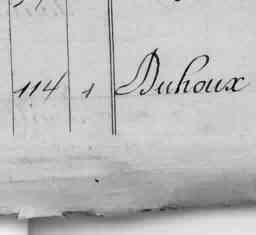 114 1 Duhoux